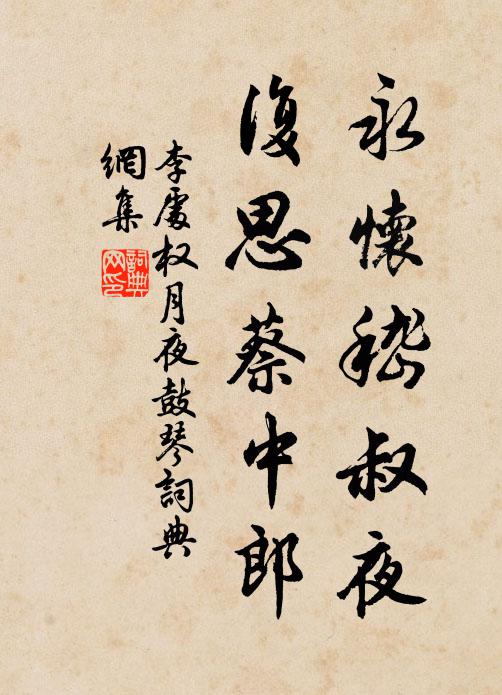 永懷嵇叔夜
復思蔡中郎
李處权月夜鼓琴詞典
網集
詞典
网印